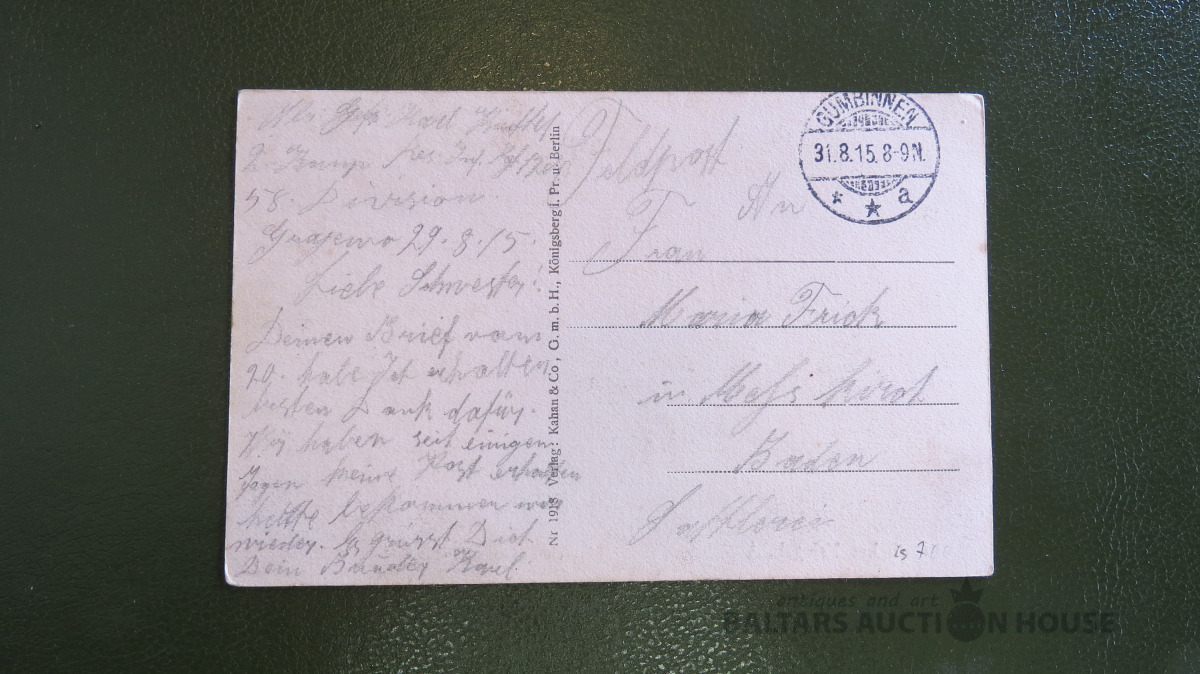 Karl
2. Komp. Res. Inf. Rgt
58. Division
Grajewo 29.8.15.
Liebe Schwester!
Deinen Brief vom
20. habe Ich erhalten
besten Dank dafür.
Wir haben seit einigen
Tagen keine Post erhalten
heute bekommen wir
wieder. Es grüsst Dich
Dein Bruder Karl.
Nr 1918 Verlag: Kahan & Co., G. m. b. H., Königsberg i. Pr. u. Berlin
Feldpost
GUMBINNEN
31.8.15.8-9N.
* ★ a
An
Frau
Maria Frick
in Messkirch
Baden
antiques and art
BALTARS AUCTION HOUSE